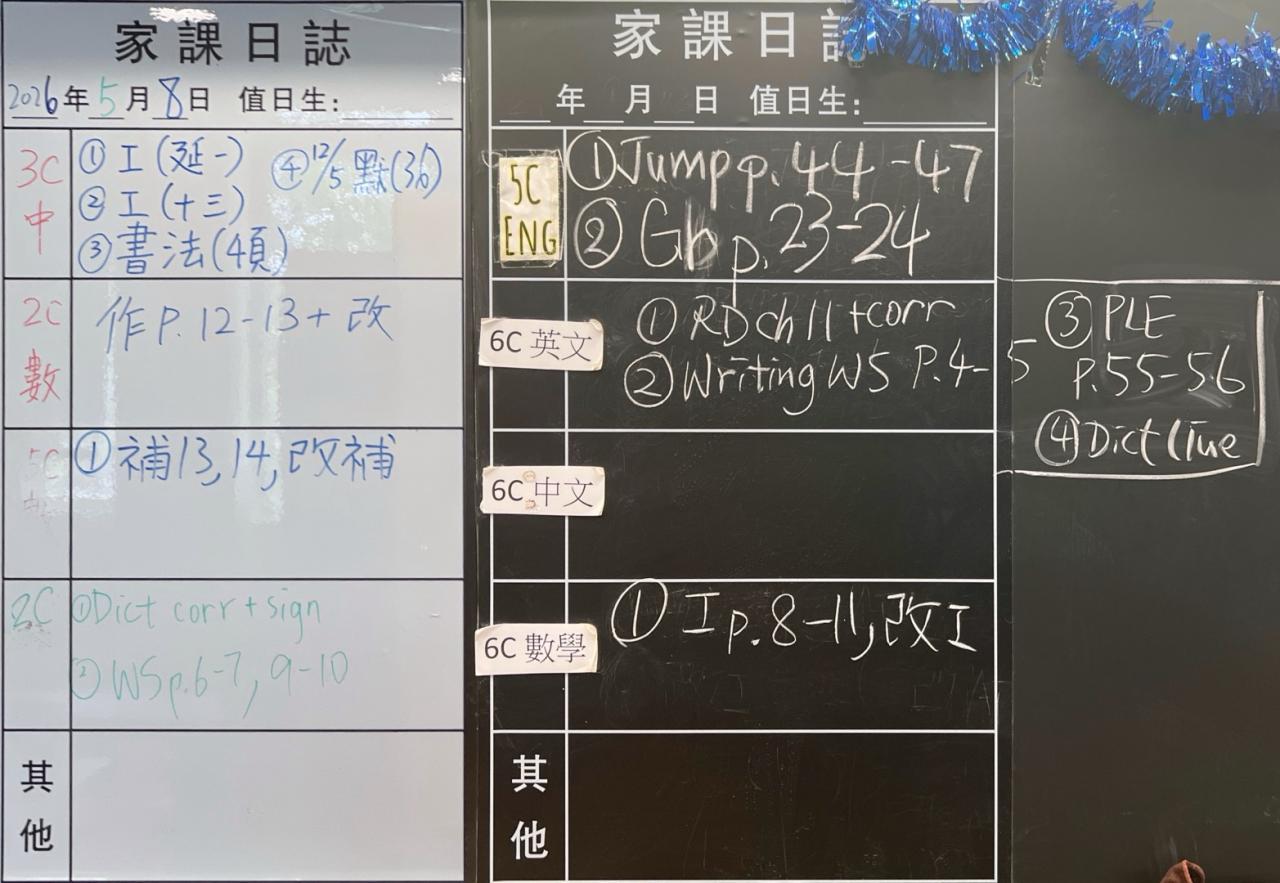 家課日誌
2026年5月8日 值日生:
3C
中
① 工(延一) ④ 12/5 默(36)
② 工(十三)
③ 書法(4頁)
2C
數
作 P. 12-13 + 改
5C
① 補13, 14, 改補
2C
① Dict corr + sign
② WS p.6-7, 9-10
其他
家課日誌
年 月 日 值日生:
5C
ENG
① Jump p. 44-47
② Gb p. 23-24
6C 英文
① RD ch 11 + corr
② Writing WS P.4-5
③ PLE
p.55-56
④ Dict (Tue
6C 中文
6C 數學
① 工 p.8-11, 改工
其他